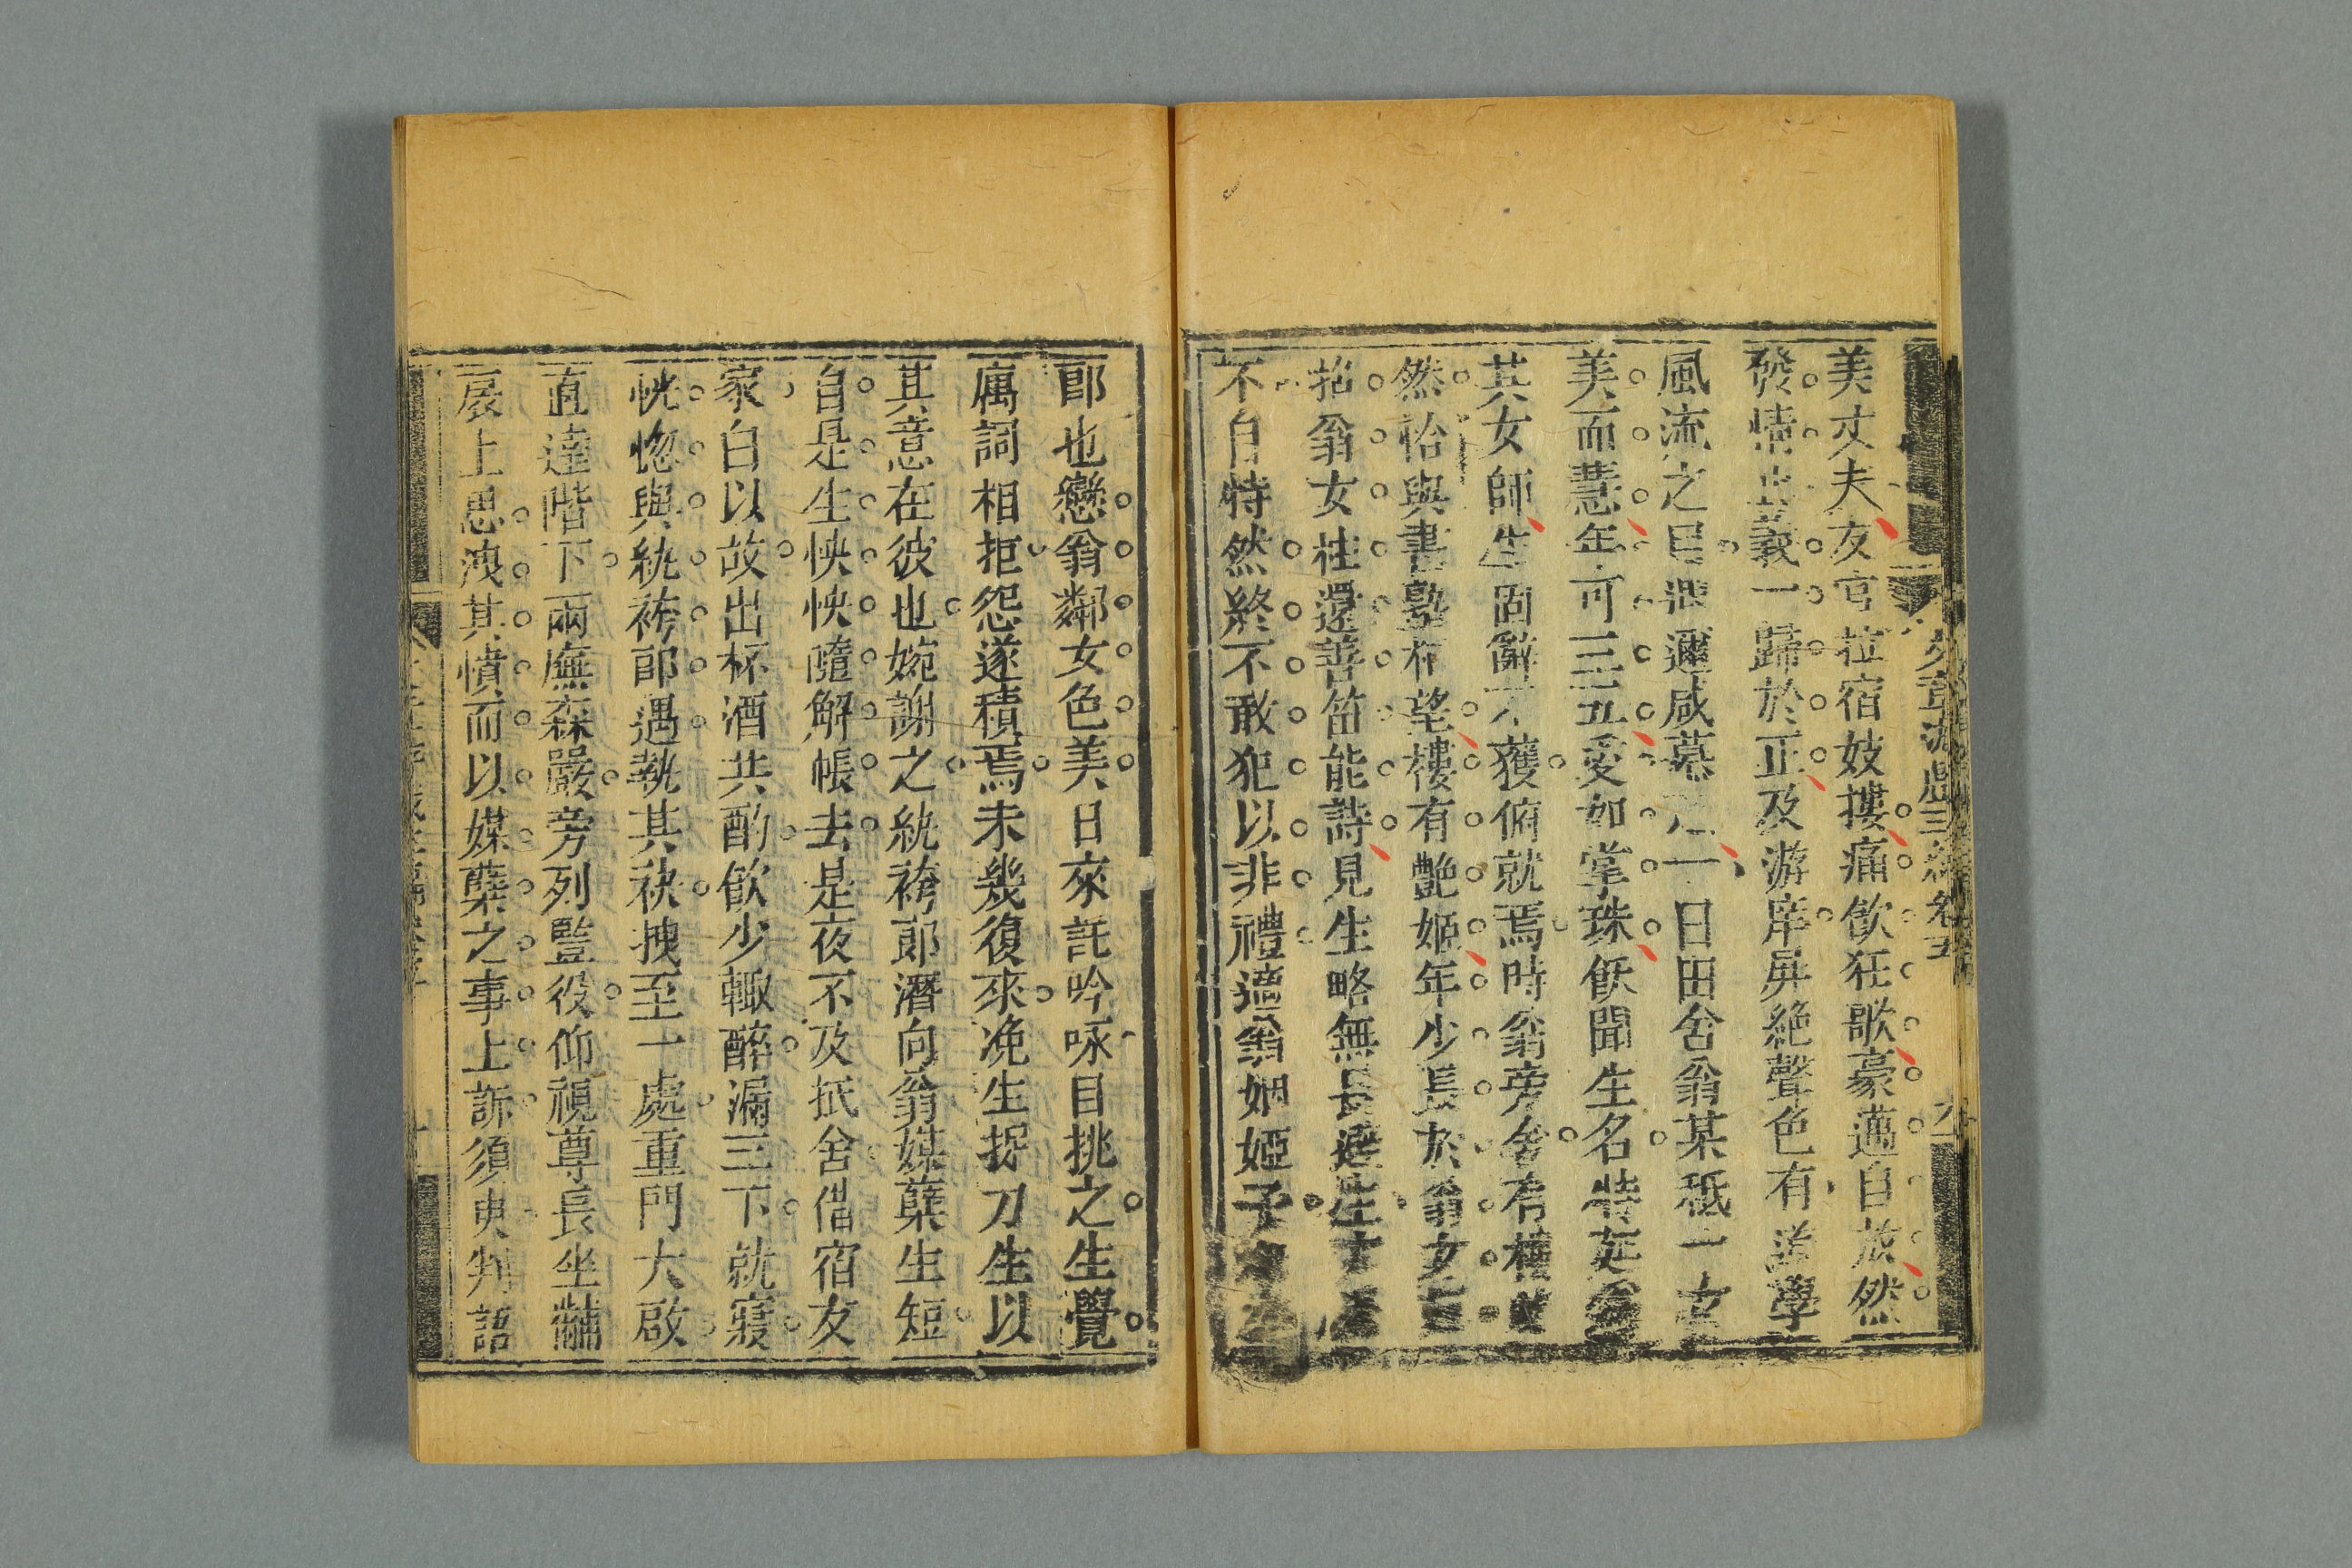 美丈夫友官拉宿妓摟痛飲狂歌豪邁自放然
發情止義一歸於正及游庠屏絶聲色有道學
風流之目遐邇咸慕之一日田舍翁某秪一女
美而慧年可三五愛如掌珠飫聞生名特延
其女師生固辭不獲俯就焉時翁旁舍有樓
然恰與書塾相望樓有艷姬年少長於翁女
招翁女桂還善笛能詩見生略無長避生
不自恃然終不敢犯以非禮適翁姻婭子
郎也戀翁鄰女色美日來託吟咏目挑之生覺
厲詞相拒怨遂積焉未幾復來浼生捉刀生以
其意在彼也婉謝之紈袴郎潛向翁媒蘖生短
自是生怏怏隨解帳去是夜不及抵舍借宿友
家白以故出杯酒共酌飲少輒醉漏三下就寢
恍惚與紈袴郎遇執其袂拽至一處重門大啟
直達階下兩廡森嚴旁列豎役仰視尊長坐黼
扆上思洩其憤而以媒蘖之事上訴須臾判語